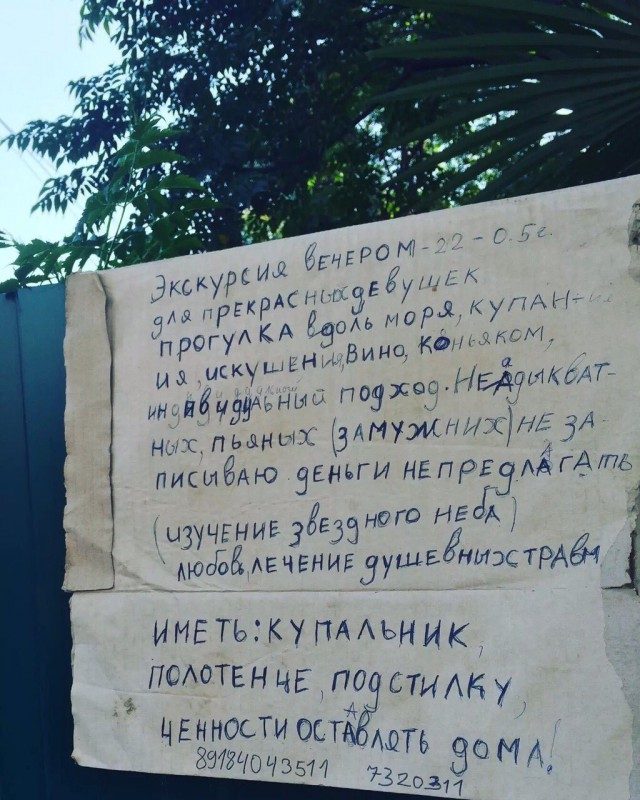 ЭКСКУРСИЯ ВЕЧЕРОМ-22-0.5г.
ДЛЯ ПРЕКРАСНЫХ ДЕВУШЕК
ПРОГУЛКА ВДОЛЬ МОРЯ, КУПАН-
ИЯ, ИСКУШЕНИЯ, ВИНО, КОНЬЯКОМ,
ИНДИВИДУАЛЬНЫЙ ПОДХОД. НЕАДЫКВАТ-
НЫХ, ПЬЯНЫХ (ЗАМУЖНИХ) НЕ ЗА-
ПИСЫВАЮ ДЕНЬГИ НЕ ПРЕДЛАГАТЬ
(ИЗУЧЕНИЕ ЗВЕЗДНОГО НЕБА)
ЛЮБОВЬ, ЛЕЧЕНИЕ ДУШЕВНЫХ ТРАВМ
ИМЕТЬ: КУПАЛЬНИК,
ПОЛОТЕНЦЕ, ПОДСТИЛКУ,
ЦЕННОСТИ ОСТАВЛЯТЬ ДОМА!
89184043511 7320311